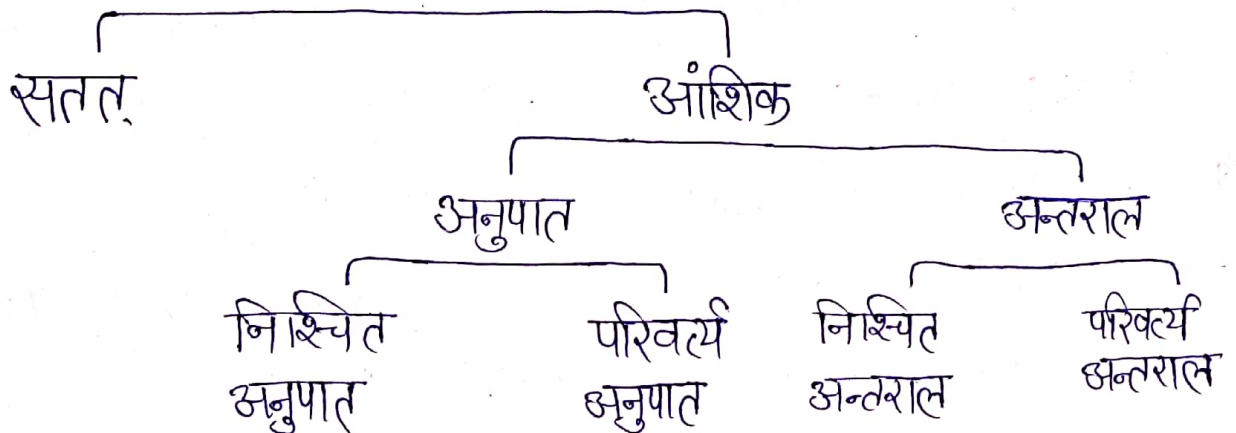 सतत्
आंशिक
अनुपात
अन्तराल
निश्चित
अनुपात
परिवर्त्य
अनुपात
निश्चित
अन्तराल
परिवर्त्य
अन्तराल